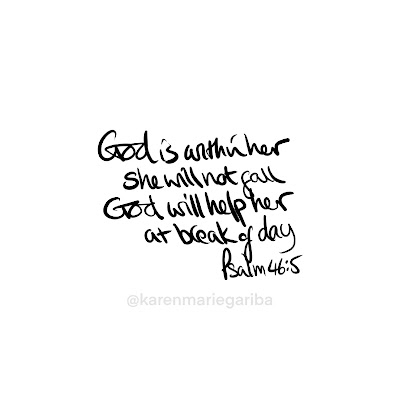 God is within her
she will not fall
God will help her
at break of day
Psalm 46:5
@karenmariegariba